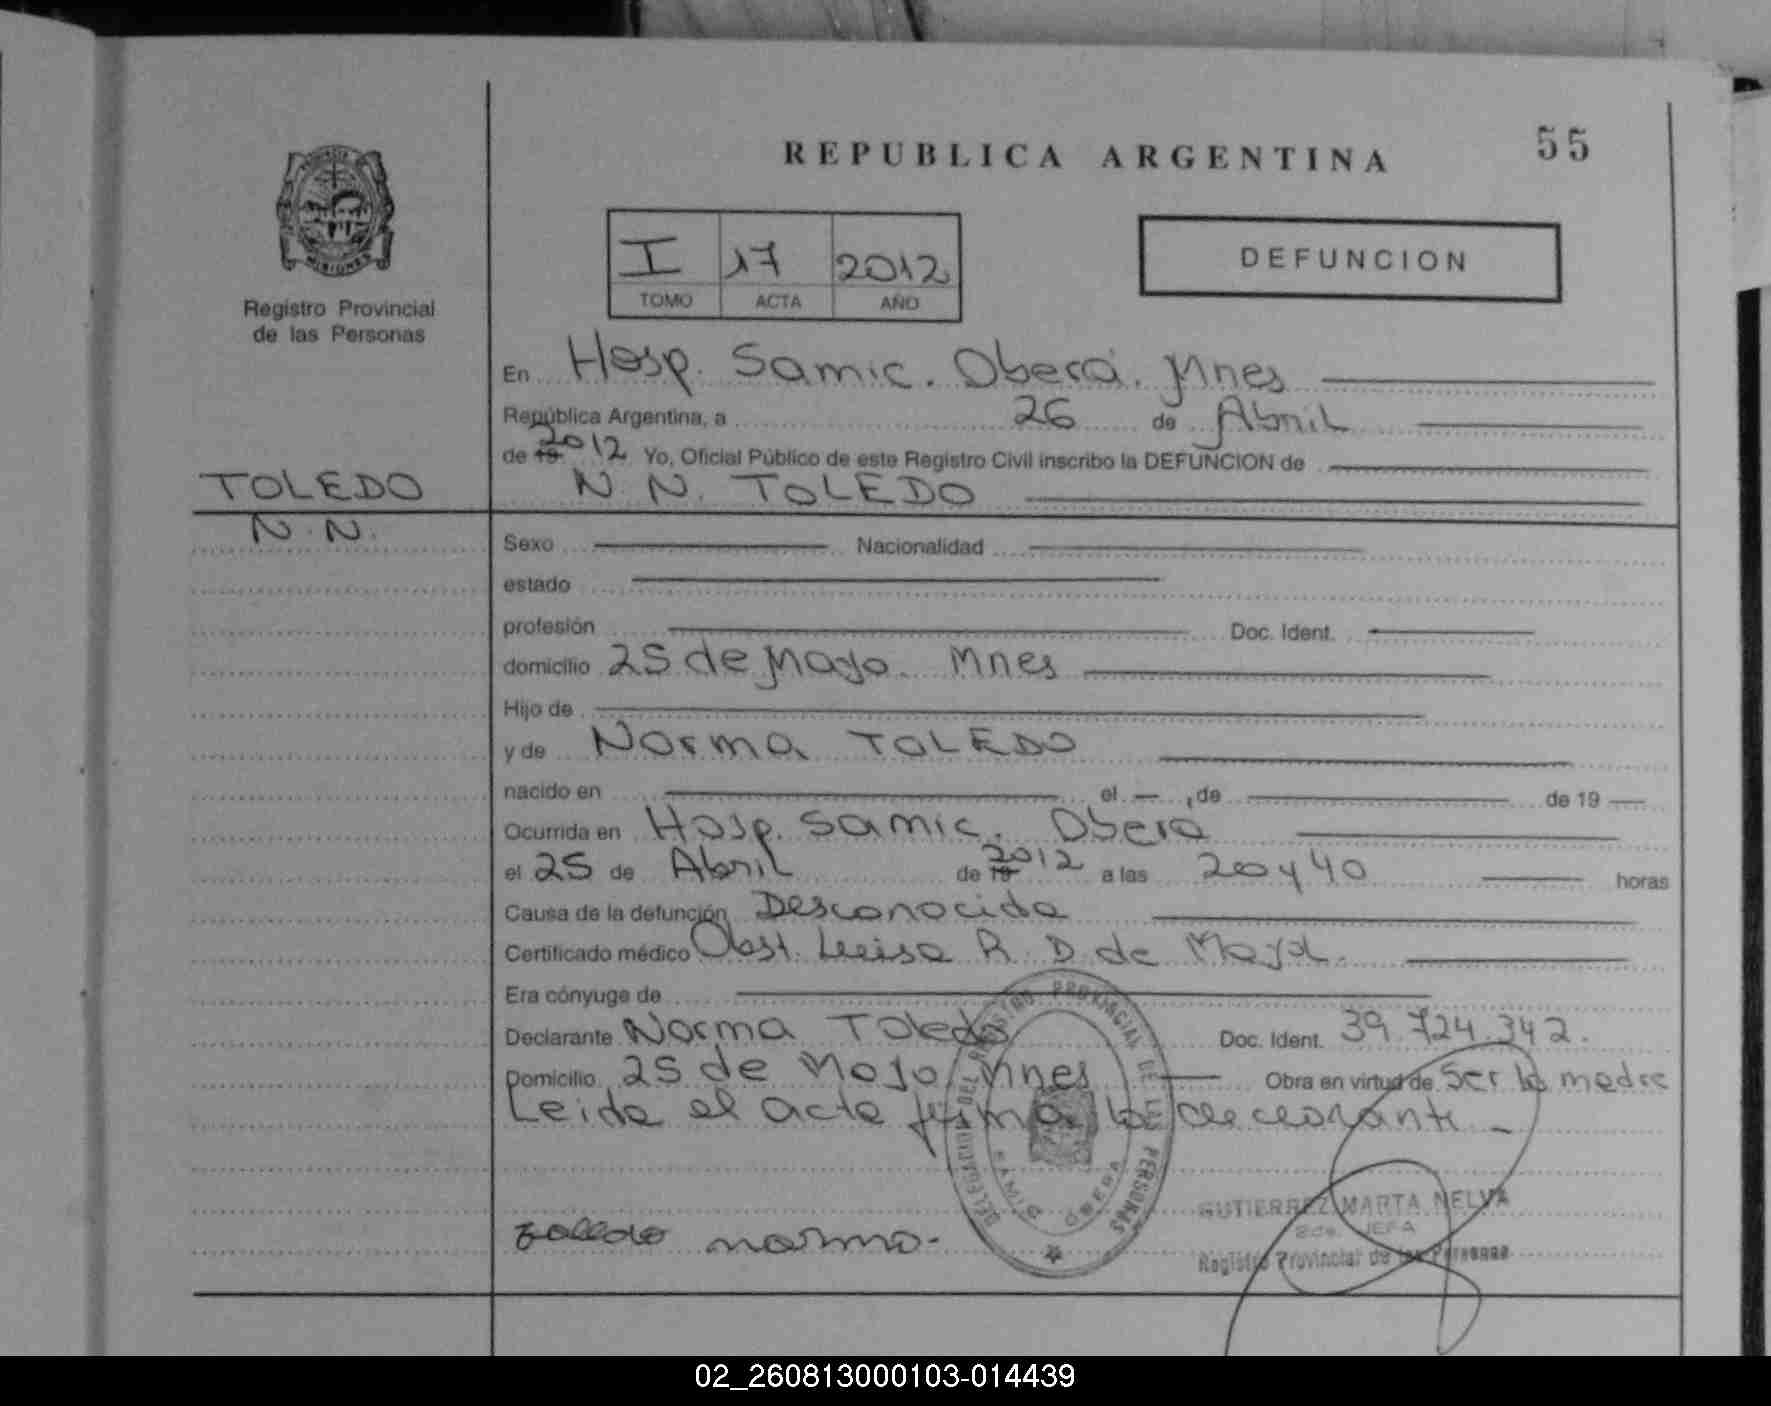 REPUBLICA ARGENTINA
55
PROVINCIA DE
MISIONES
Registro Provincial
de las Personas
I 17 2012
TOMO ACTA AÑO
DEFUNCION
En Hosp. Samic. Oberá. Mnes
República Argentina, a 26 de Abril
de 19 2012 Yo, Oficial Público de este Registro Civil inscribo la DEFUNCION de
TOLEDO
N. N. TOLEDO
N. N.
Sexo Nacionalidad
estado
profesión Doc. Ident.
domicilio 25 de Mayo. Mnes
Hijo de
y de Norma TOLEDO
nacido en el , de de 19
Ocurrida en Hosp. Samic. Obera
el 25 de Abril de 19 2012 a las 20 y 40 horas
Causa de la defunción Desconocida
Certificado médico Obst. Luisa R. D. de
Era cónyuge de
Declarante Norma Toledo Doc. Ident. 39.724.342.
Domicilio 25 de Mayo Mnes Obra en virtud de Ser la madre
Leida el acta firma la declarante
DELEGACION DEL REGISTRO PROVINCIAL DE LAS PERSONAS
SAMIC OBERA
toledo norma.
GUTIERREZ MARTA NELVA
2da. JEFA
Registro Provincial de las Personas
02_260813000103-014439